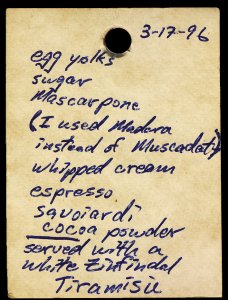 3-17-96
egg yolks
sugar
Mascarpone
(I used Madera
instead of Muscadati)
whipped cream
espresso
savoiardi
cocoa powder
served with a
white Zinfindal
Tiramisu